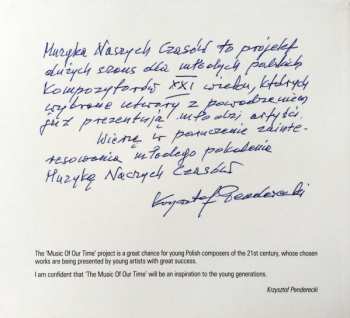 Muzyka Naszych Czasów to projekt
dużych szans dla młodych polskich
kompozytorów XXI wieku, których
wybrane utwory z powodzeniem
już prezentują młodzi artyści.
Wierzę w poruszenie zainte-
resowania młodego pokolenia
Muzyką Naszych Czasów
Krzysztof Penderecki
The 'Music Of Our Time' project is a great chance for young Polish composers of the 21st century, whose chosen
works are being presented by young artists with great success.
I am confident that 'The Music Of Our Time' will be an inspiration to the young generations.
Krzysztof Penderecki